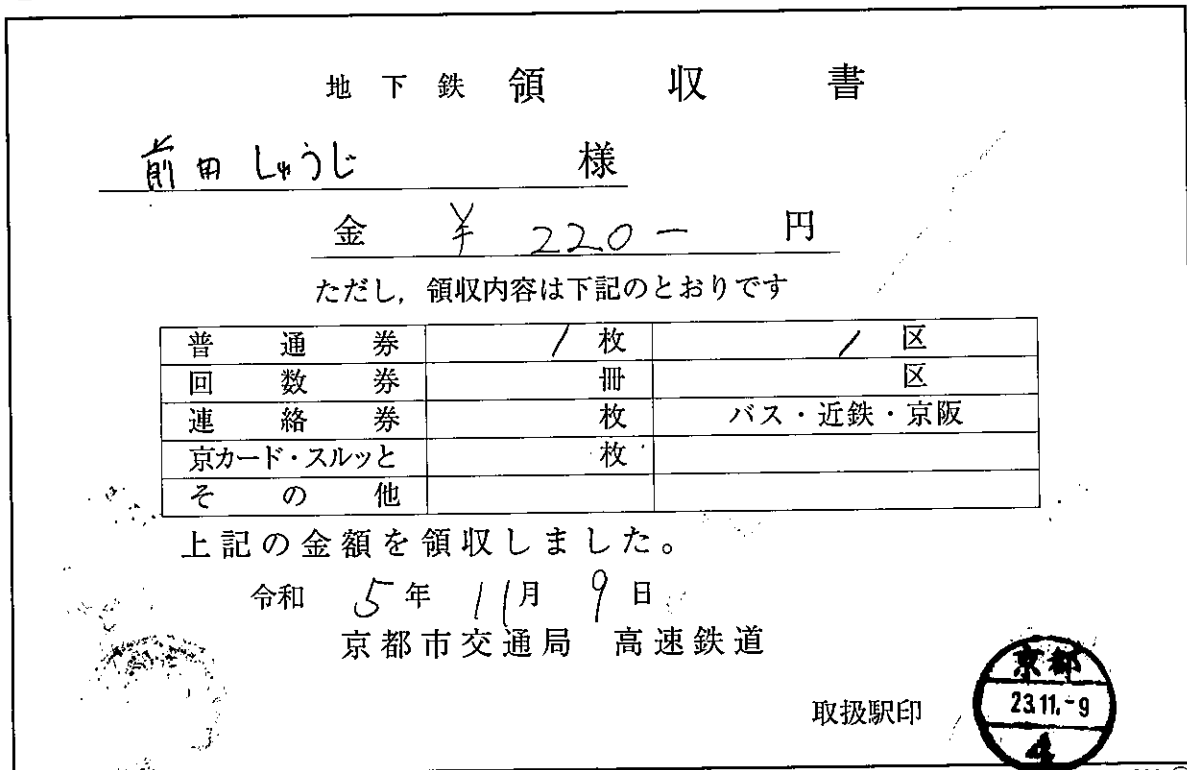 地下鉄 領収書
前田しゅうじ 様
金 ¥ 220- 円
ただし,領収内容は下記のとおりです
普通券 1 枚 1 区
回数券 冊 区
連絡券 枚 バス・近鉄・京阪
京カード・スルッと 枚
その他
上記の金額を領収しました。
令和 5年 11月 9日
京都市交通局 高速鉄道
取扱駅印
京都
23.11.-9
4